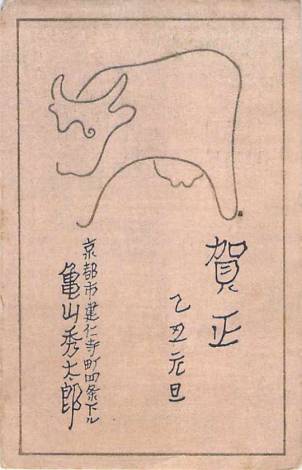 賀正
乙丑元旦
京都市建仁寺町四条下ル
亀山秀太郎